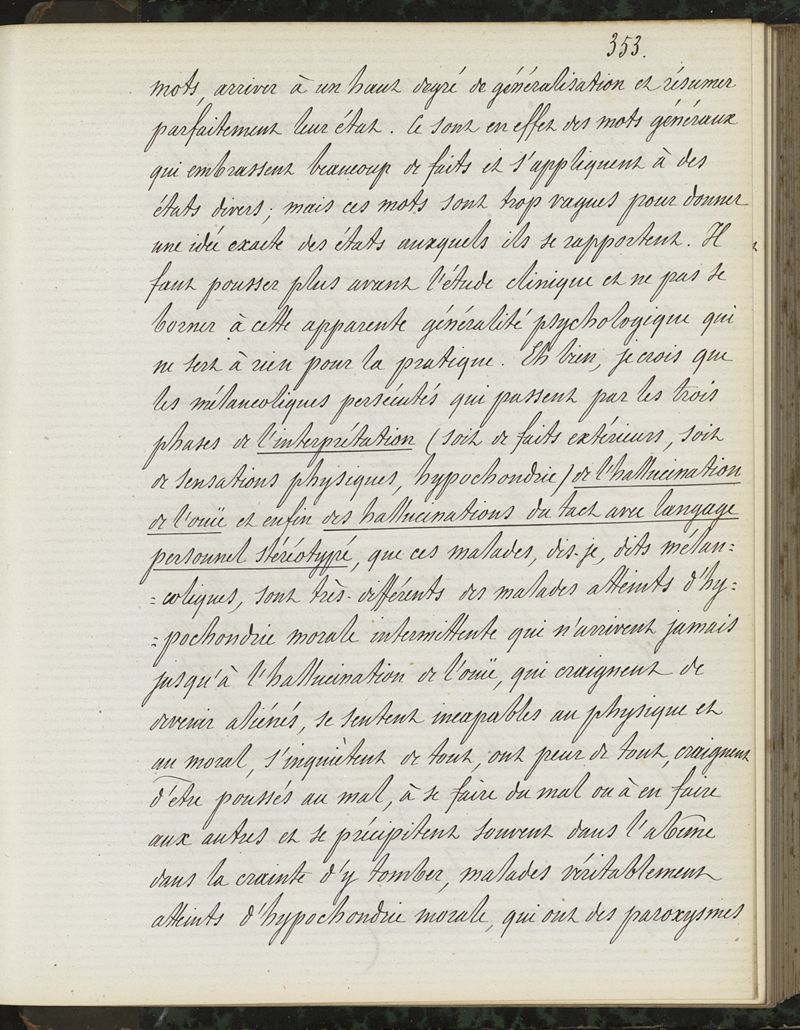 353.
mots, arriver à un haut degré de généralisation et résumer
parfaitement leur état. Ce sont en effet des mots généraux
qui embrassent beaucoup de faits et s'appliquent à des
états divers; mais ces mots sont trop vagues pour donner
une idée exacte des états auxquels ils se rapportent. Il
faut pousser plus avant l'étude clinique et ne pas se
borner à cette apparente généralité psychologique qui
ne sert à rien pour la pratique. Eh bien, je crois que
les mélancoliques persécutés qui passent par les trois
phases de l'interprétation (soit de faits extérieurs, soit
de sensations physiques, hypochondrie) de l'hallucination
de l'ouïe et enfin des hallucinations du tact avec langage
personnel stéréotypé, que ces malades, dis-je, dits mélan=
=coliques, sont très-différents des malades atteints d'hy=
=pochondrie morale intermittente qui n'arrivent jamais
jusqu'à l'hallucination de l'ouïe, qui craignent de
devenir aliénés, se sentent incapables au physique et
au moral, s'inquiètent de tout, ont peur de tout, craignent
d'être poussés au mal, à se faire du mal ou à en faire
aux autres et se précipitent souvent dans l'abîme
dans la crainte d'y tomber, malades véritablement
atteints d'hypochondrie morale, qui ont des paroxysmes